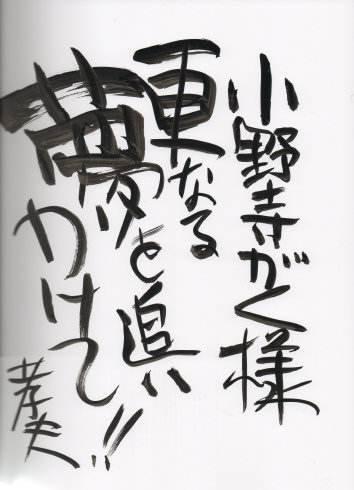 小野寺がく様
更なる
夢を追い
かけて!!
孝夫